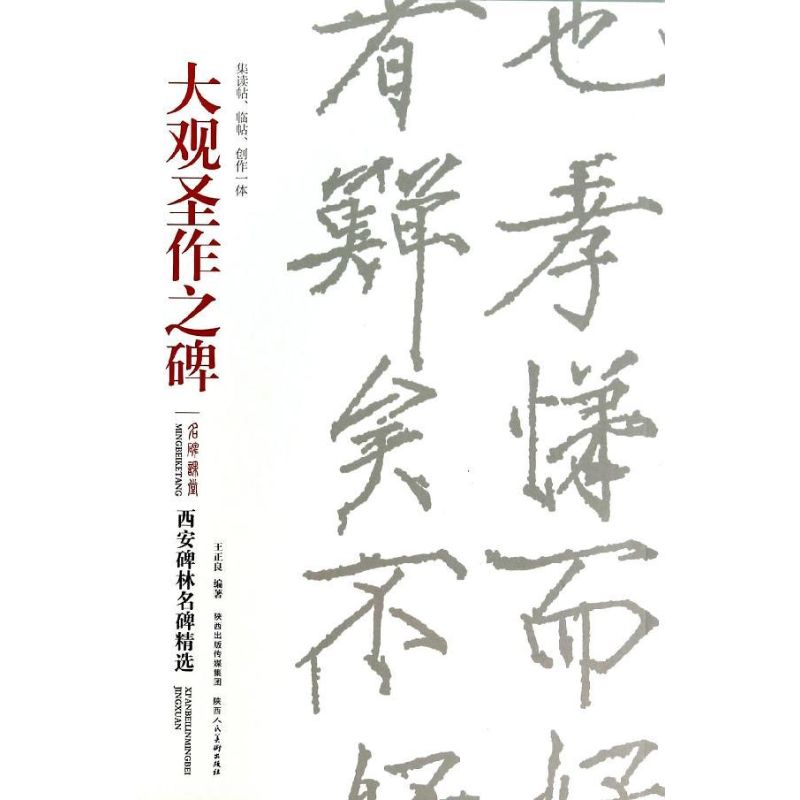 也孝悌而好
者鮮矣不好
集读帖、临帖、创作一体
大观圣作之碑
名碑课堂
MINGBEIKETANG
西安碑林名碑精选
XI'ANBEILINMINGBEI
JINGXUAN
王正良 编著
陕西出版传媒集团 陕西人民美术出版社